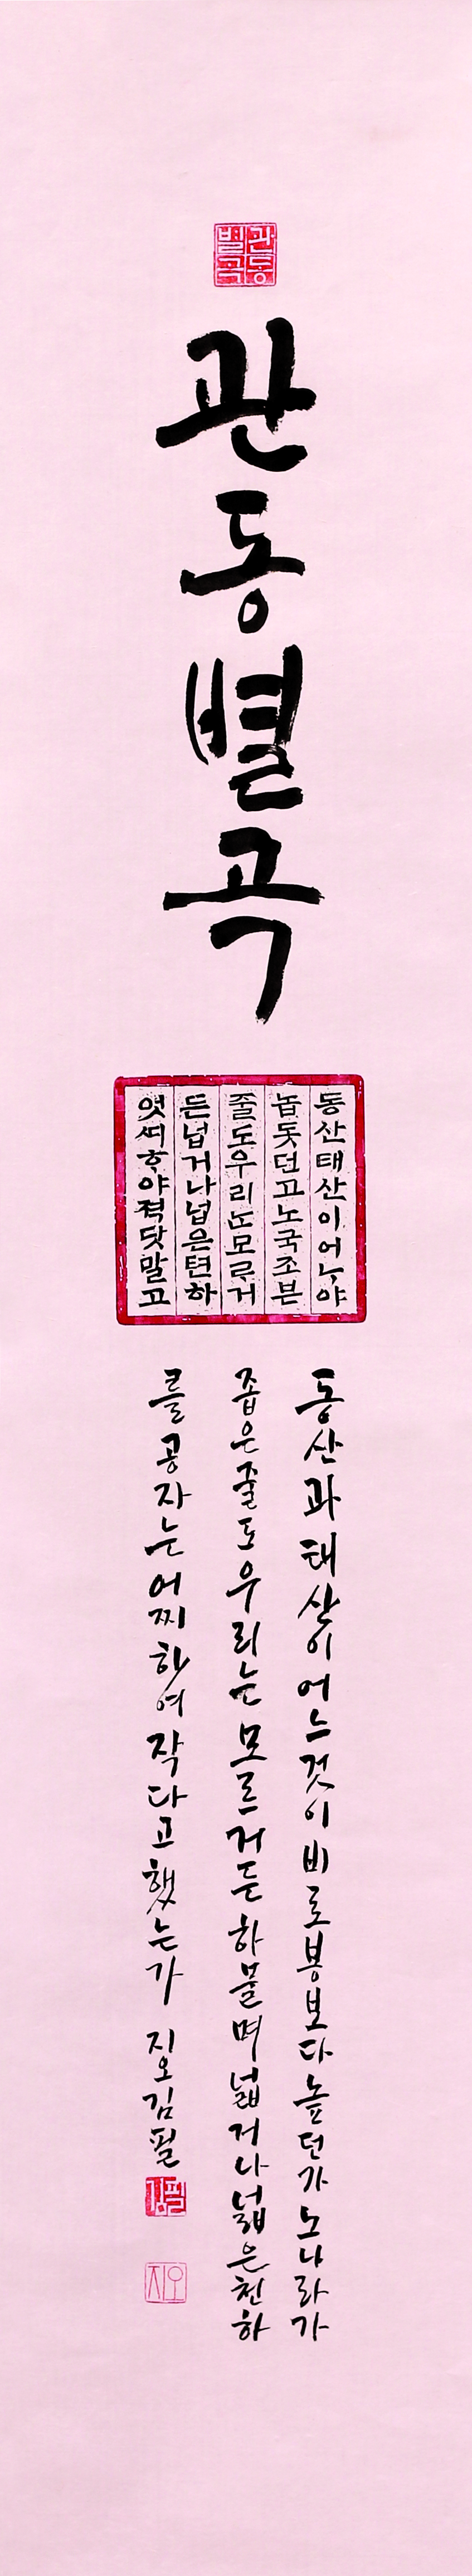 관동
별곡
관동별곡
동산태산이어ᄂᆞ야
놉돗던고노국조븐
줄도우리ᄂᆞᆫ모ᄅᆞ거
든넙거나넙은텬하
엇ᄯᅵᄒᆞ야젹닷말고
동산과태산이어느것이비로봉보다높던가노나라가
좁은줄도우리는모르거든하물며넓거나넓은천하
를공자는어찌하여작다고했는가 지오김필
김필
지오